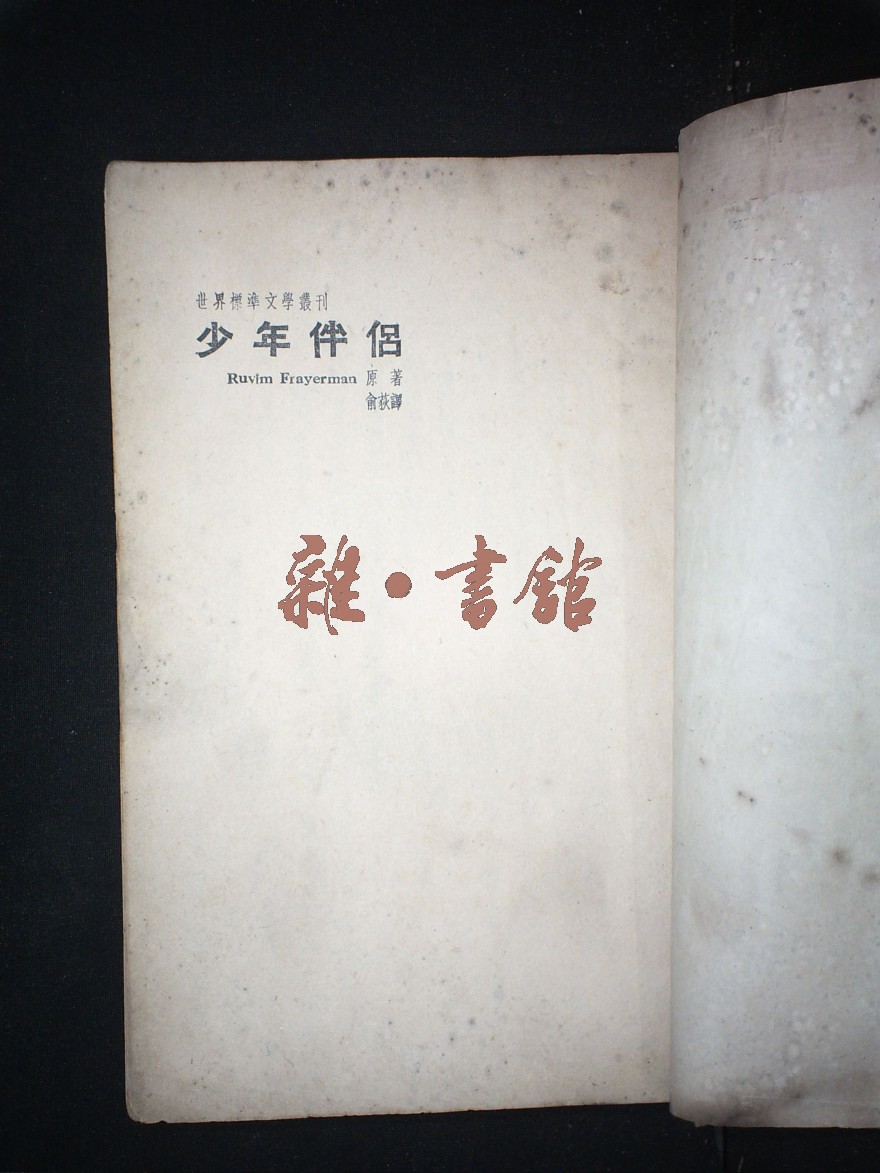 世界標準文學叢刊
少年伴侶
Ruvim Frayerman 原著
俞荻譯
雜·書館